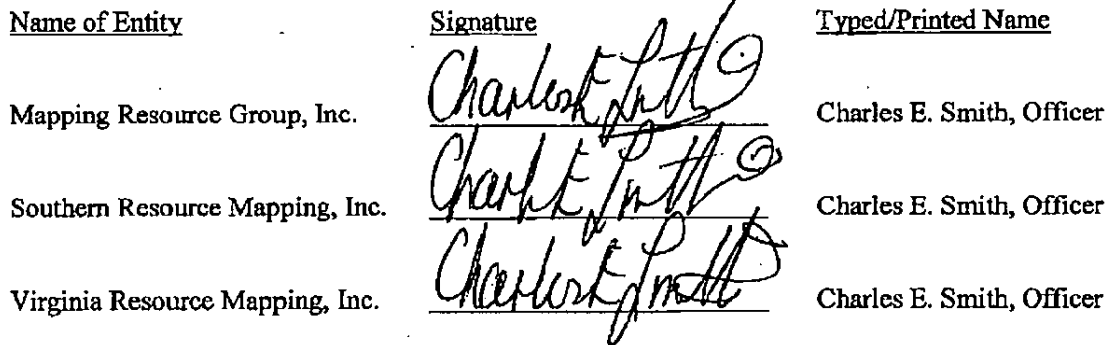 Name of Entity Signature Typed/Printed Name
Mapping Resource Group, Inc. Charles E. Smith Charles E. Smith, Officer
Southern Resource Mapping, Inc. Charles E. Smith Charles E. Smith, Officer
Virginia Resource Mapping, Inc. Charles E. Smith Charles E. Smith, Officer